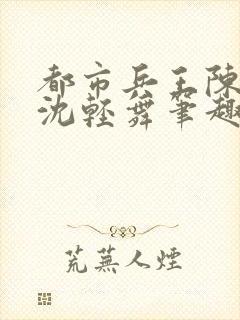 都市兵王陳
沈輕舞笔趣
荒蕪人煙